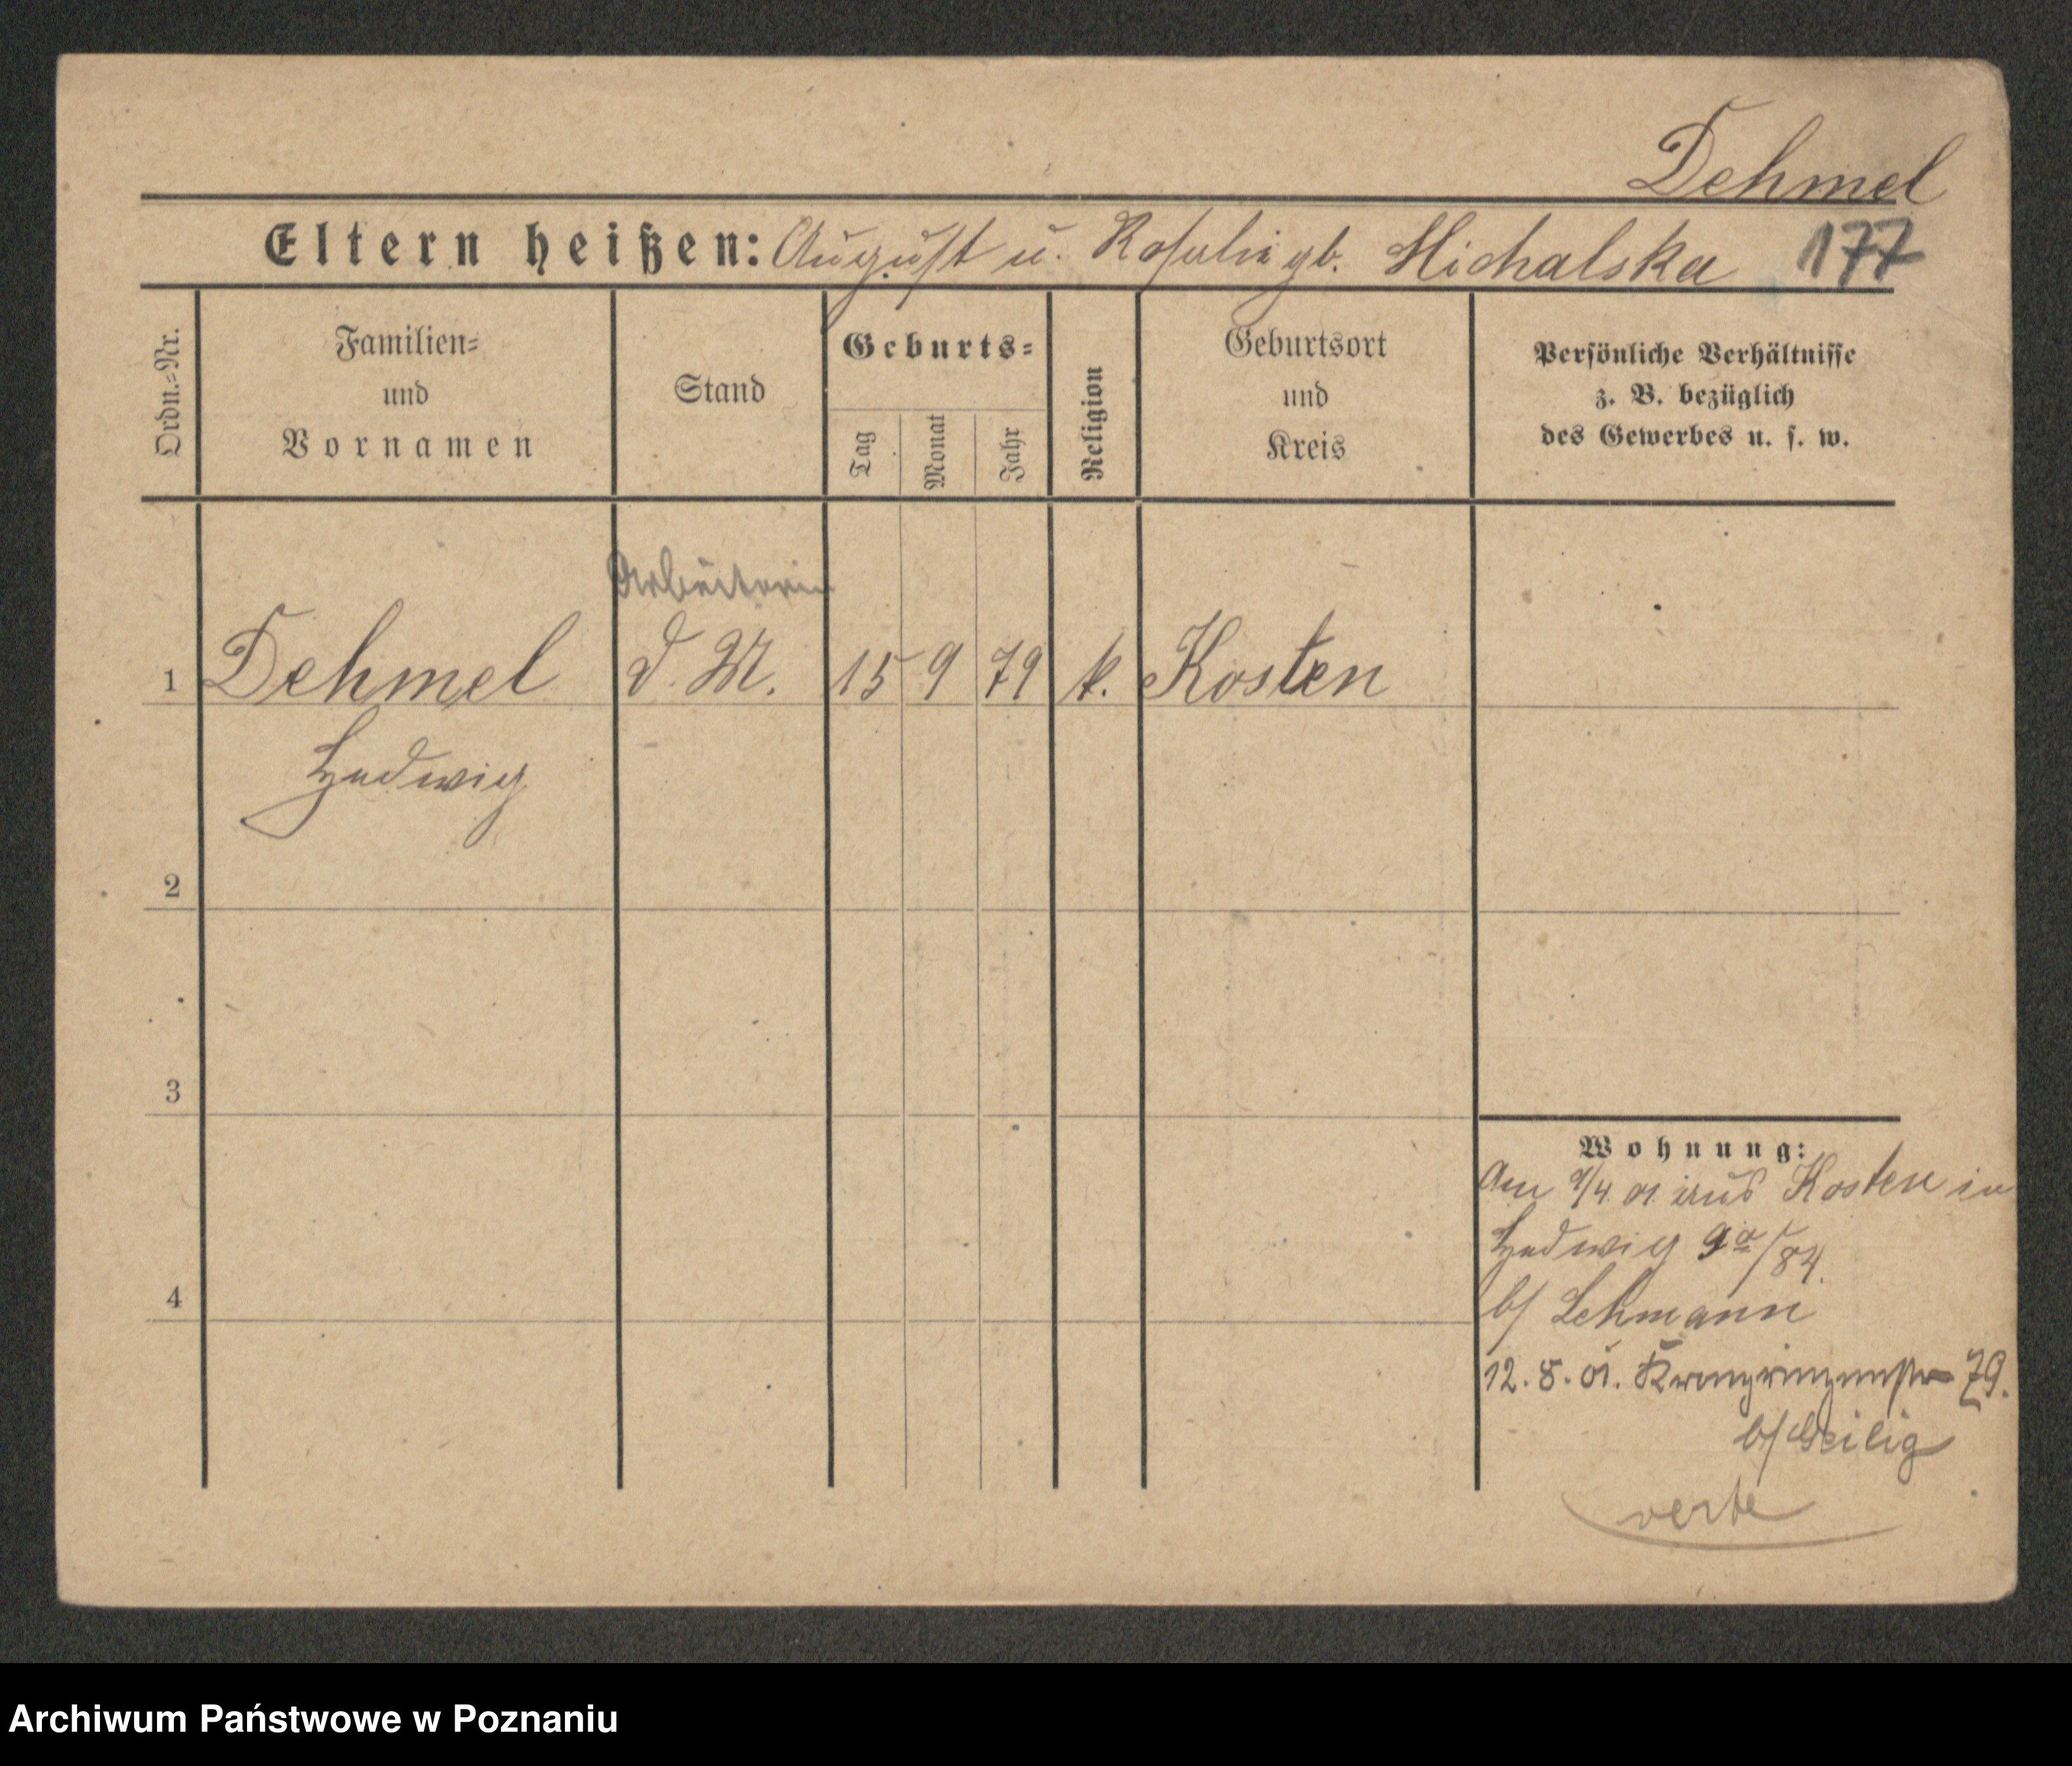 Dehmel
Eltern heißen: August u. Rosalie gb. Michalska 177
Ordn.=Nr.
Familien=
und
Vornamen
Stand
Geburts=
Tag
Monat
Jahr
Religion
Geburtsort
und
Kreis
Persönliche Verhältnisse
z. B. bezüglich
des Gewerbes u. s. w.
Arbeiterin
1 Dehmel d. M. 15 9 79 k. Kosten
Hedwig
2
3
4
Wohnung:
Am 9/4 01 aus Kosten in
b/ Lehmann
12. 8. 01. 79.
b/ Heilig
verte
Archiwum Państwowe w Poznaniu